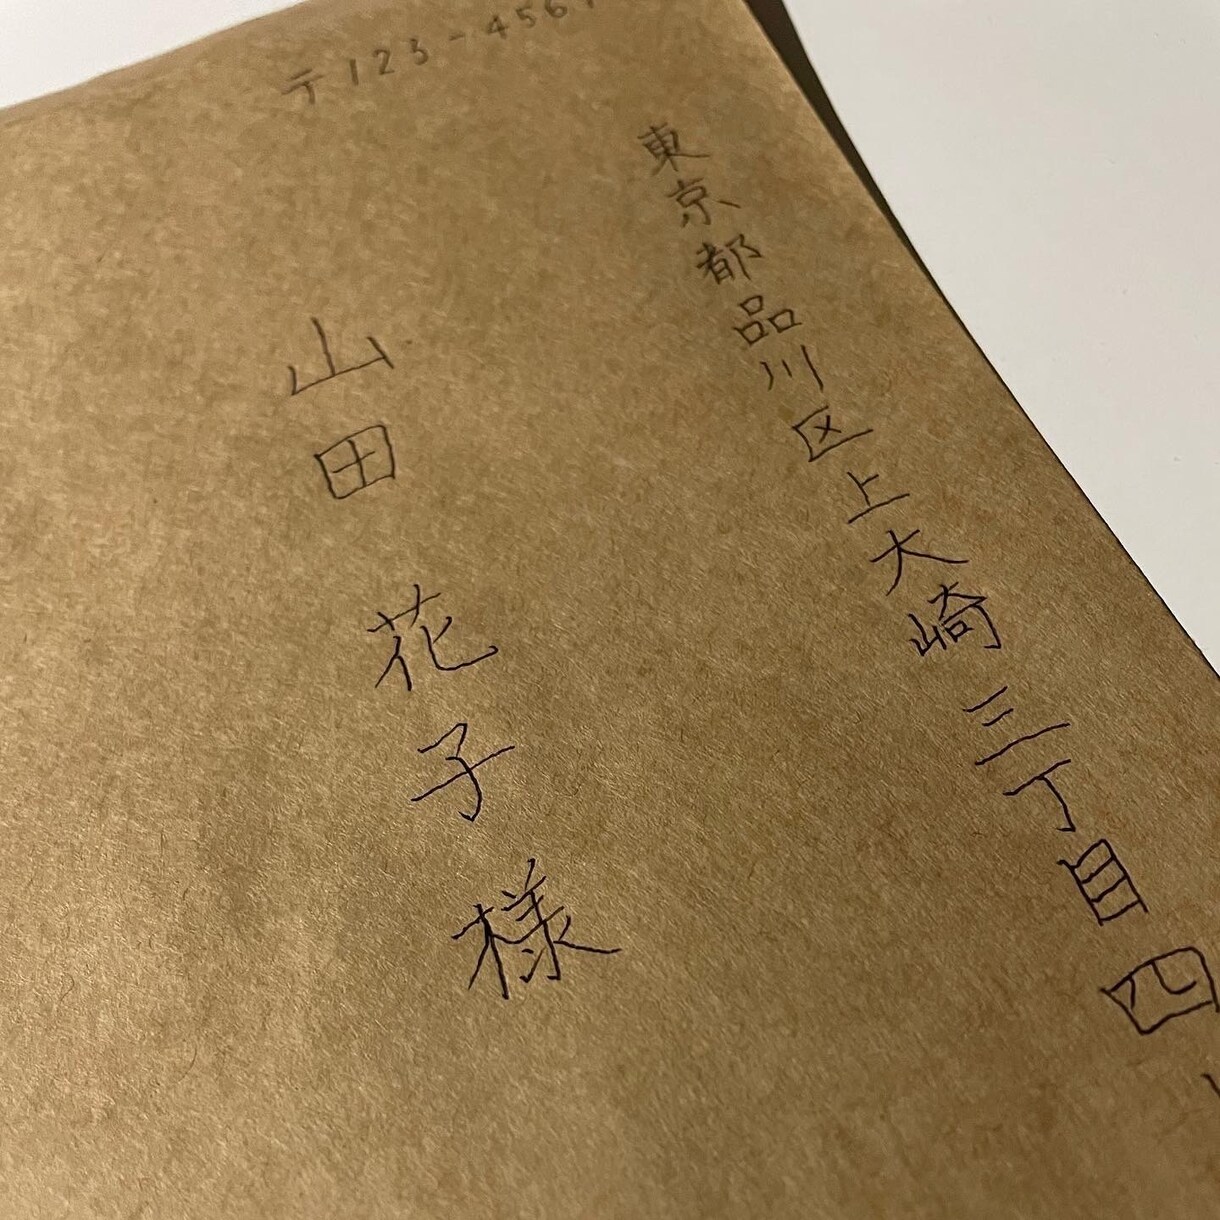 〒123-4567
東京都品川区上大崎三丁目四
山田 花子 様